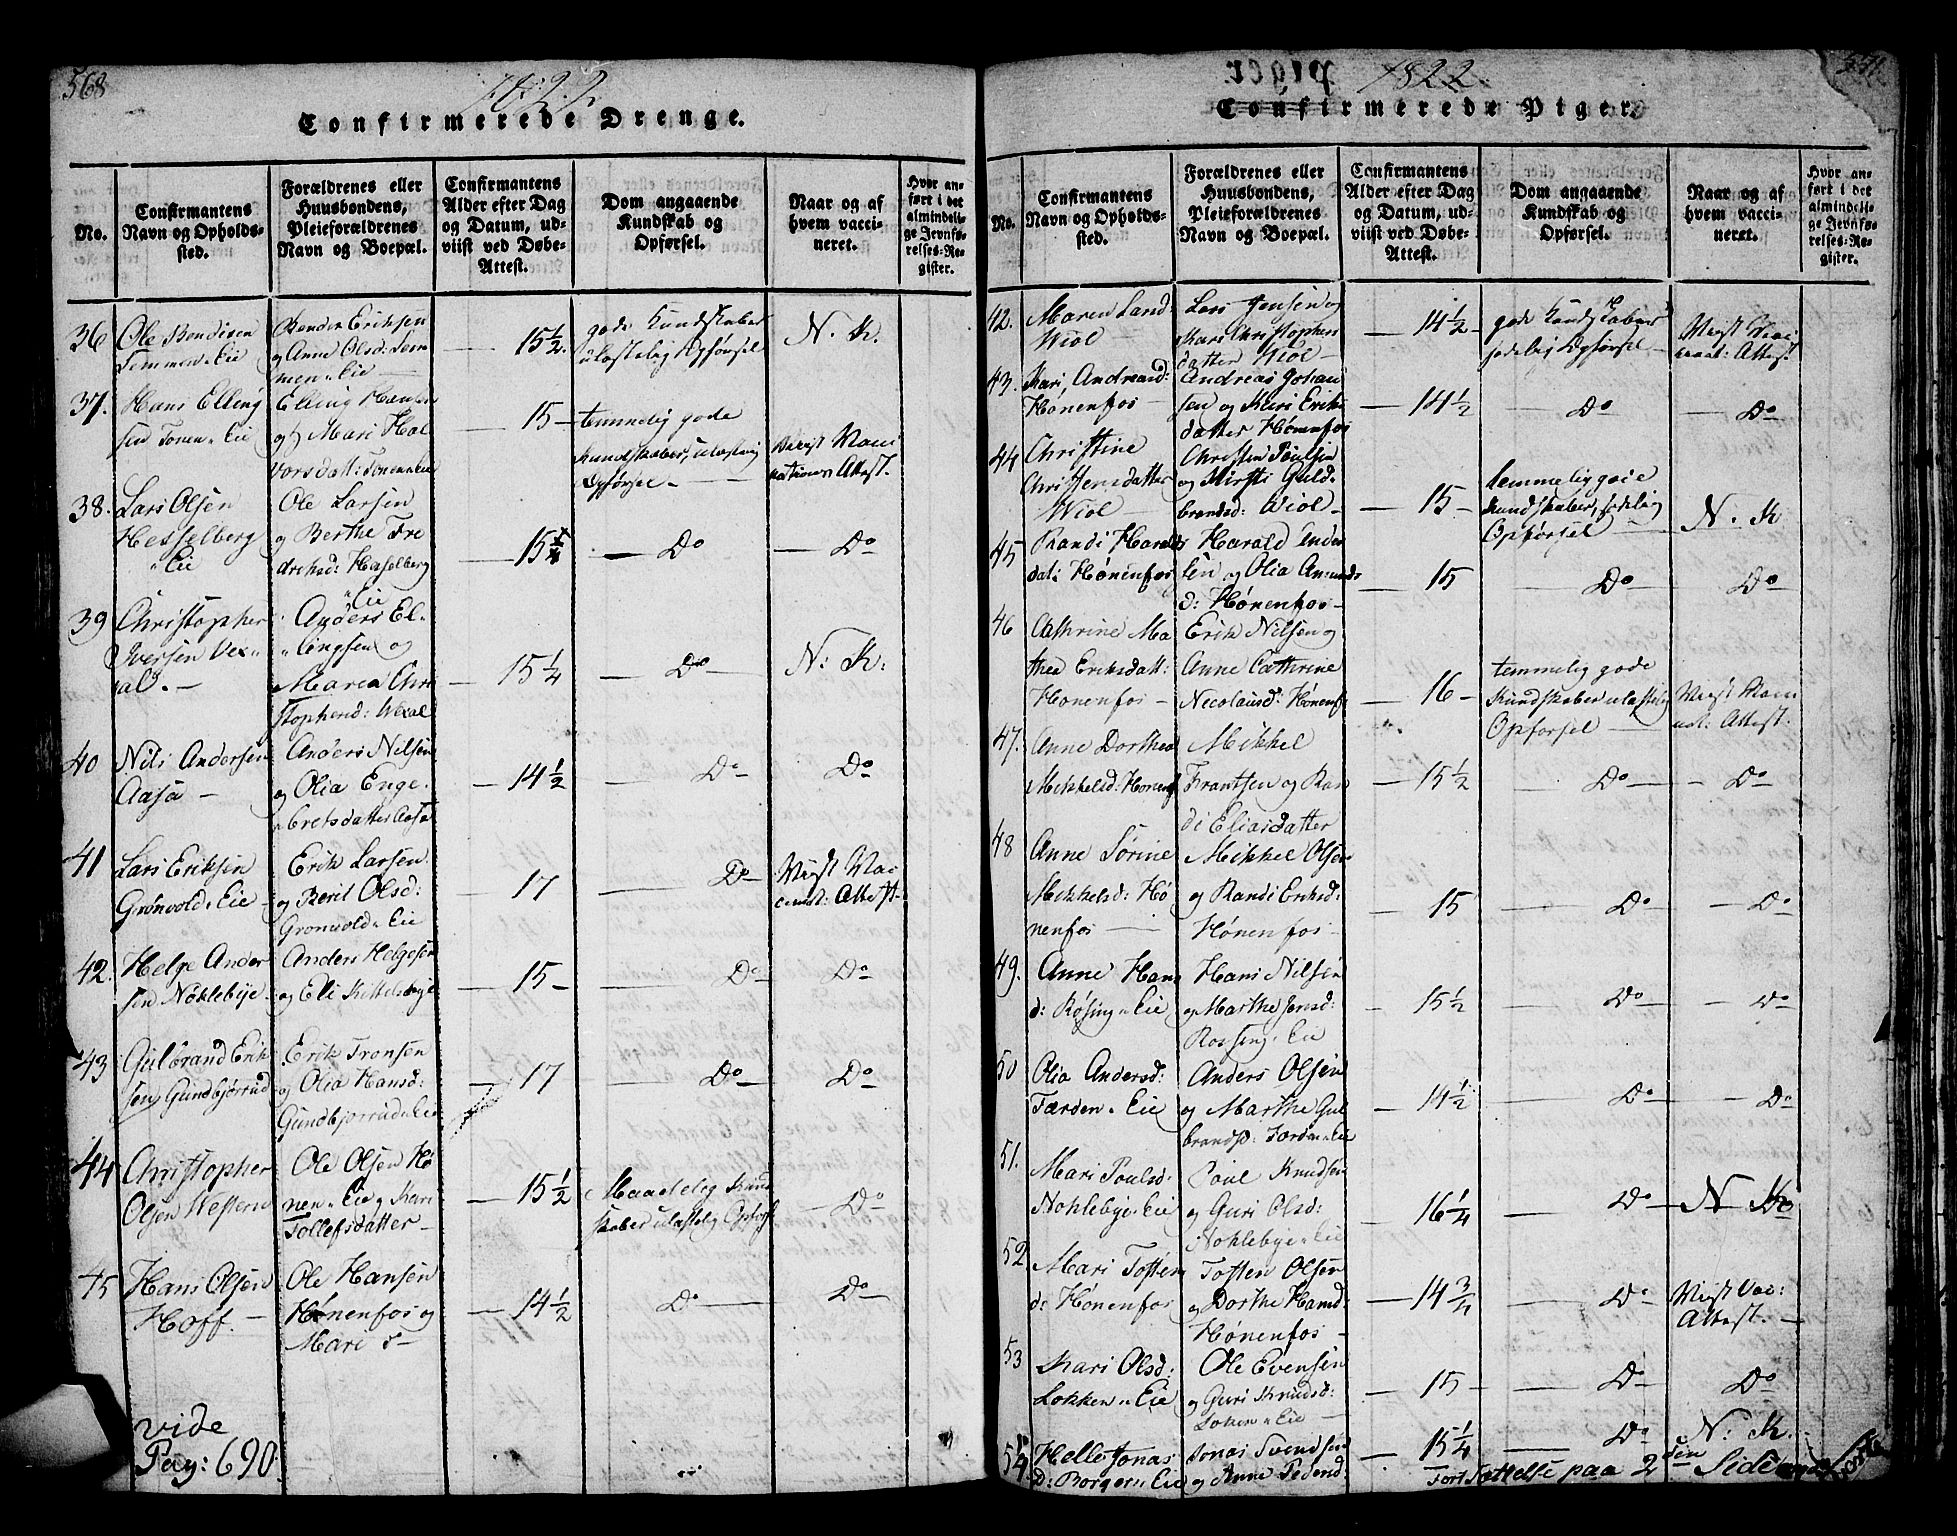 568
1822
Confirmerede Drenge.
No.
Confirmantens
Navn og Opholds-
sted.
Forældrenes eller
Huusbondens,
Pleieforældrenes
Navn og Boepæl.
Confirmantens
Alder efter Dag
og Datum, ud-
viist ved Døbe-
Attest.
Dom angaaende
Kundskab og
Opførsel.
Naar og af
hvem vacci-
neret.
Hvor an-
ført i det
almindeli-
ge Jevnfø-
relses-Re-
gister.
36
Ole Bendixen
Semmen Eie
Bendix Eriksen
og Anne Olsd: Sem
men Eie
15 1/2
gode Kundskaber
ulastelig Opførsel
N. K.
37.
Hans Elling
sen Tonen Eie
Elling Hansen
og Mari Hal
vorsdatt: Tonen Eie
15
temmelig gode
Kundskaber, ulastelig
Opførsel
Viist Vacci
nations Attest.
38.
Lars Olsen
Hesselberg
Eie
Ole Larsen
og Berthe Fre
driksd: Haselberg
Eie
15
Do
Do
39
Christopher
Iversen Vex
al.
Anders El
lingsen og
Maren Chri
stophersd: Wexal
15 1/4
Do
N: K:
40
Nils Andersen
Aasa
Anders Nilsen
og Olia Enge
bretsdatter Aasa
14 1/2
Do
Do
41
Lars Eriksen
Grønvold Eie
Erik Larsen
og Beret Olsd:
Gronvold Eie
17
Do
Viist Vac
cinat: Attest
42.
Helge Ander
sen Noklebye
Anders Helgesen
og Eli Kittelsd
15
Do
Do
43
Gulbrand Erik
sen Gundbjørrud
Erik Tronsen
og Olia Hansd:
Gundbjorrud Eie
17
Do
Do
44
Christopher
Olsen Western
Ole Olsen Hø
nen Eie og Kari
Tollefsdatter
15 1/2
Maadelig Kund
skaber ulastelig Opførs
Do
45
Hans Olsen
Hoff.
Ole Hansen
Hønenfos og
Mari
14 1/2
Do
Do
vide
Pag: 690
1822
Confirmerede Piger.
No.
Confirmantens
Navn og Opholds-
sted.
Forældrenes eller
Huusbondens,
Pleieforældrenes
Navn og Boepæl.
Confirmantens
Alder efter Dag
og Datum, ud-
viist ved Døbe-
Attest.
Dom angaaende
Kundskab og
Opførsel.
Naar og af
hvem vacci-
neret.
Hvor an-
ført i det
almindeli-
ge Jevnfø-
relses-Re-
gister.
42.
Maren Larsd:
Wiol
Lars Jensen og
Kari Christophers
datter Wiol
14 1/2
gode Kundskaber
sedelig Opførsel
Viist Vacci
nat: Attest
43.
Kari Andreasd:
Hønenfos
Andreas Johan
sen og Kari Eriks
datter Hønenfos
14 1/2
Do
Do
44
Christine
Christensdatter
Wiol
Christen Poulsen
og Kirsti Guld
brandsd: Wiol
15
temmelig gode
Kundskaber, sedelig
Opførsel
N. K
45
Randi Haralds
dat: Hønenfos
Harald Ander
sen og Olia Amunds
d: Hønenfos
15
Do
Do
46
Cathrine Ma
thea Eriksdatt:
Honenfos
Erik Nilsen og
Anne Cathrine
Necolausd: Hønenf
16
temmelig gode
Kundskaber ulastelig
Opforsel
Viist Vacci
nat: Attest.
47.
Anne Dorthea
Mikkelsd: Honenf
Mikkel
Frantsen og Ran
di Eliasdatter
15 1/2
Do
Do
48
Anne Sorine
Mikkelsd: Hø
nenfos
Mikkel Olsen
og Randi Eriksd:
Hønenfos
15
Do
Do
49.
Anne Hans
d: Røsing Eie
Hans Nilsen
og Marthe Jensd:
Rossing Eie
15 1/2
Do
Do
50
Olia Andersd:
Tærden Eie
Anders Olsen
og Marthe Gul
brandsd: Tærden Eie
14 1/2
Do
Do
51.
Mari Poulsd:
Noklebye Eie
Poul Knudsen
og Guri Olsd:
Noklebye Eie
16 1/4
Do
N K
52
Mari Tosten
d: Hønenfos
Tosten Olsen
og Dorthe Hansd:
Hønenfos
14 3/4
Do
Viist Vac:
Attest.
53
Kari Olsd:
Lokken Eie
Ole Evensen
og Guri Knudsd:
Loken Eie
15
Do
Do
54
Helle Jonas
D: Borgern Eie
Jonas Svendsen
og Anne Pedersd:
15 1/4
Do
N: K.
Fortsættelse paa 2den Side